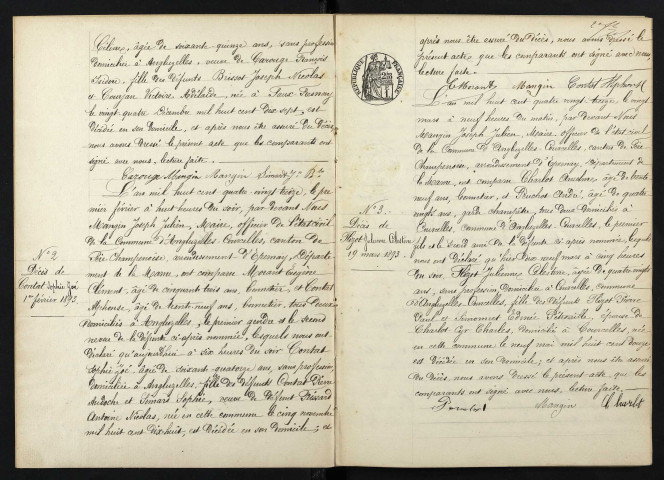 Célina, âgée de soixante quinze ans, sans profession
domiciliée à Angluzelles, veuve de Carouge François
Isidore, fille des défunts Brisset Joseph Nicolas
et Victoire Adélaïde, née à
le vingt quatre Décembre mil huit cent dix sept, est
décédée en son domicile, et après nous être assuré du Décès,
nous avons dressé le présent acte que les comparants ont
signé avec nous, lecture faite.
Carouge Mangin Mangin Simard
N° 2
Décès de
Contat Sophie Zoé
1er février 1893.
L'an mil huit cent quatre vingt treize, le pre-
mier février à huit heures du soir, par devant Nous
Mangin Joseph Julien, Maire, officier de l'état civil
de la Commune d'Angluzelles Courcelles, canton de
Fère Champenoise, arrondissement d'Epernay, Départe-
ment de la Marne, ont comparu Morant Eugène
Clément, âgé de cinquante trois ans, Cometier, et Contat
Alphonse, âgé de trente-neuf ans, Cometier, tous deux
domiciliés à Angluzelles, le premier gendre et le second
neveu de la défunte ci-après nommée, lesquels nous ont
déclaré qu'aujourd'hui à six heures du soir Contat
Sophie Zoé, âgée de soixante quatorze ans, sans profession,
domiciliée à Angluzelles, fille des défunts Contat Pierre
et Simart Sophie, veuve de défunt
Antoine Nicolas, née en cette commune le cinq novembre
mil huit cent dix huit, est décédée en son domicile; et
après nous être assuré du Décès, nous avons dressé le
présent acte que les comparants ont signé avec nous,
lecture faite.
RÉPUBLIQUE FRANÇAISE
Morant Mangin Contat Alphonse
N° 3.
Décès de
Hyot Julienne Célestine
19 mars 1893.
L'an mil huit cent quatre vingt treize, le vingt
mars à neuf heures du matin, par devant Nous
Mangin Joseph Julien, Maire, officier de l'état civil
de la Commune d'Angluzelles Courcelles, canton de Fère
Champenoise, arrondissement d'Epernay, département de
la Marne, ont comparu Charlot Anselme, âgé de trente
neuf ans, Cometier, et Bruchot André, âgé de quatre
vingts ans, garde champêtre, tous deux domiciliés à
Courcelles, commune d'Angluzelles Courcelles, le premier
fils et le second ami de la défunte ci-après nommée, lesquels
nous ont déclaré qu'hier dix neuf mars à cinq heures
du soir Hyot Julienne Célestine, âgée de quatre vingts
ans, sans profession, domiciliée à Courcelles, commune
d'Angluzelles Courcelles, fille des défunts Hyot Pierre
Paul et Simonnet Edmée Pétronille, épouse de
Charlot Cyr Charles, domicilié à Courcelles, née
en cette commune le neuf mai mil huit cent douze,
est décédée en son domicile; et après nous être assuré
du décès, nous avons dressé le présent acte que les
comparants ont signé avec nous, lecture faite.
Mangin Charlot